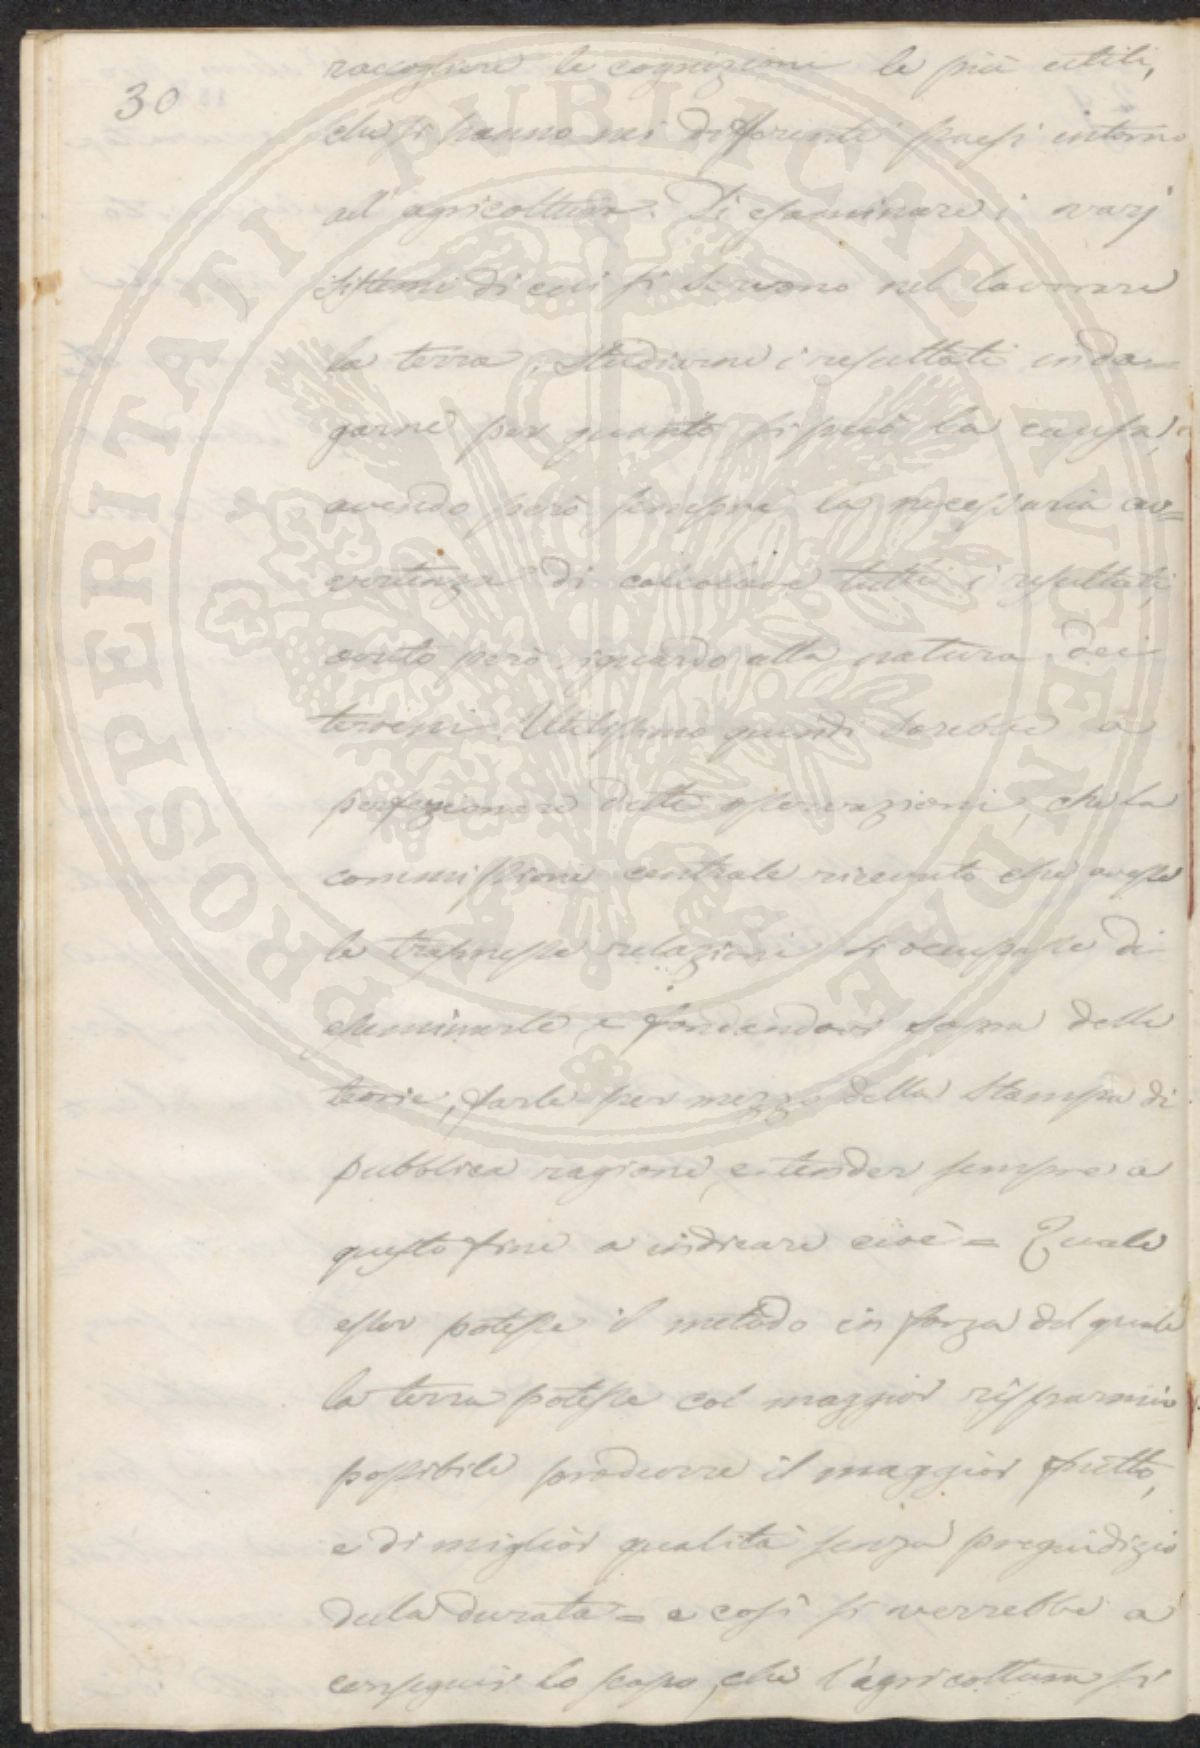 30
raccogliere le cognizioni le più utili,
che si hanno nei differenti paesi intorno
all'agricoltura. Di esaminare i varj
sistemi di cui si servono nel lavorare
la terra, studiarne i resultati inda=
garne per quanto si può la causa,
avendo però sempre la necessaria av=
vertenza di calcolare tutti i resultati,
avuto però riguardo alla natura dei
terreni. Utilissimo quindi sarebbe a
perfezionare dette osservazioni, che la
commissione centrale ricevuto che avesse
le trasmesse relazioni si occupasse di
esaminarle e fondandovi sopra delle
teorie, farle per mezzo della Stampa di
pubblica ragione, e tender sempre a
questo fine a indicare cioè = Quale
esser potesse il metodo in forza del quale
la terra potesse col maggior risparmio
possibile produrre il maggior frutto,
e di miglior qualità senza pregiudizio
della durata = e così si verrebbe a
conseguir lo scopo, che l'agricoltura si
PROSPERITATI PUBLICAE AVGENDAE